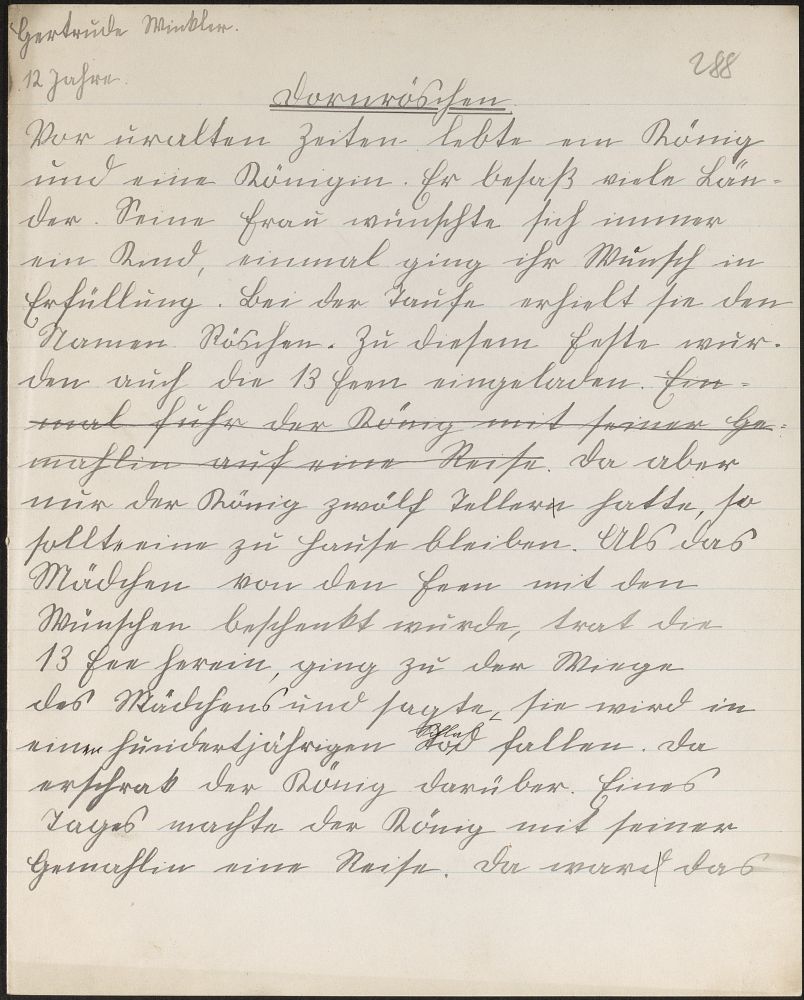 Gertrude Winkler.
288
12 Jahre.
Dornröschen.
Vor uralten Zeiten lebte ein König
und eine Königin. Er besaß viele Län-
der. Seine Frau wünschte sich immer
ein Kind, einmal ging ihr Wunsch in
Erfüllung. Bei der Taufe erhielt sie den
Namen Röschen. Zu diesem Feste wur-
den auch die 13 Feen eingeladen. Ein-
mal fuhr der König mit seiner Ge-
mahlin auf eine Reise. Da aber
nur der König zwölf Tellern hatte, so
sollte eine zu Hause bleiben. Als das
Mädchen von den Feen mit den
Wünschen beschenkt wurde, trat die
13 Fee herein, ging zu der Wiege
des Mädchens und sagte, sie wird in
einen hundertjährigen Schlaf fallen. Da
erschrak der König darüber. Eines
Tages machte der König mit seiner
Gemahlin eine Reise. Da ward das